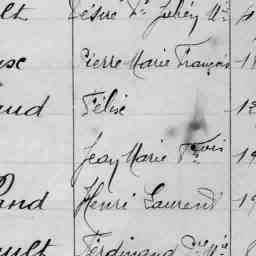 ult Désiré Fr Julien Mie
use Pierre Marie François 1
aud Félise 19
Jean Marie Fois 19
Rand Henri Laurent 19
ault Ferdinand